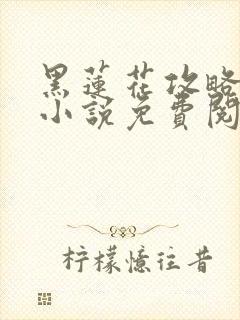 黑蓮花攻略
小說免費閱
柠檬憶往昔